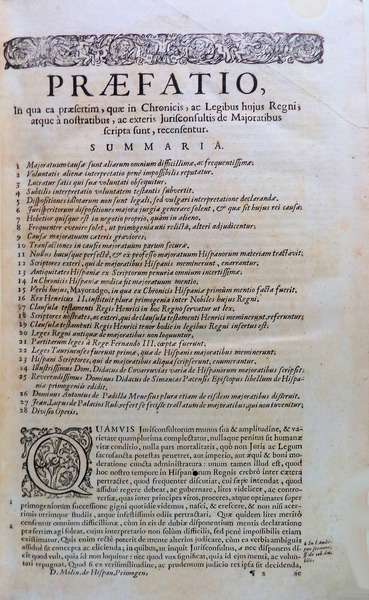 PRÆFATIO,
In qua ea præsertim, quæ in Chronicis, ac Legibus hujus Regni,
atque à nostratibus, ac exteris Jurisconsultis de Majoratibus
scripta sunt, recensentur.
SUMMARIA.
1 Majoratuum causæ sunt aliarum omnium difficillimæ, ac frequentissimæ.
2 Voluntatis alienæ interpretatio penè impossibilis reputatur.
3 Juratur satis qui suæ voluntati obsequitur.
4 Subtilis interpretatio voluntatem testantis subvertit.
5 Dispositiones idiotarum non sunt legali, sed vulgari interpretatione declarandæ.
6 Jurisperitorum dispositiones majora jurgia generare solent, & quæ sit hujus rei causa.
7 Hebetior quisque est in negotio proprio, quàm in alieno.
8 Frequenter evenire solet, ut primogenia uni relicta, alteri adjudicentur.
9 Causæ majoratuum cæteris graviores.
10 Transactiones in causis majoratuum partum securæ.
11 Nullus hucusque perfectè, & ex professo majoratuum Hispanorum materiam tractavit.
12 Scriptores exteri, qui de majoratibus Hispanis meminerunt, enarrantur.
13 Antiquitates Hispaniæ ex Scriptorum penuria omnium incertissimæ.
14 In Chronicis Hispaniæ modica fit majoratuum mentio.
15 Verbi hujus, Mayoradgo, in qua ex Chronicis Hispaniæ primùm mentio facta fuerit.
16 Rex Henricus II. instituit plura primogenia inter Nobiles hujus Regni.
17 Clausula testamenti Regis Henrici in hoc Regno servatur ut lex.
18 Scriptores nostrates, ac exteri, qui de clausula testamenti Henrici meminerunt, referuntur.
19 Clausula testamenti Regis Henrici tenor hodie in legibus Regni infertus est.
20 Leges Regni antiquæ de majoratibus non loquuntur.
21 Partitarum leges à Rege Fernando III. cœptæ fuerunt.
22 Leges Taurinenses fuerunt primæ, quæ de Hispanis majoratibus meminerunt.
23 Hispani Scriptores, qui de majoratibus aliqua scripserunt, enumerantur.
24 Illustrissimus Dom. Didacus de Covarruvias varia de Hispanorum majoratibus scripsit.
25 Reverendissimus Dominus Didacus de Simancas Pacensis Episcopus libellum de Hispa-
niæ primogeniis edidit.
26 Dominus Antonius de Padilla Menesius plura etiam de eisdem majoratibus disseruit.
27 Joan. Lupus de Palacios Rub. refert se fecisse tractatum de majoratibus, qui non invenitur.
28 Divisio Operis.
QUAMVIS Jurisconsultorum munus sua & amplitudine, & va-
rietate quamplurima complectatur, nullaque penitus sit humanæ
vitæ conditio, nulla pars mortalitatis, quò non Juris ac Legum
sacrosancta potestas penetret, aut imperio, aut æqui & boni mo-
deratione cuncta administratura: unum tamen illud est, quod
hoc nostro tempore in Hispaniarum Regnis crebrò inter cætera
pertractet, quod frequenter discutiat, cui sæpe intendat, quod
assiduè regere debeat, ac gubernare, lites videlicet, ac contro-
versias, quas inter principes viros, proceres, atque optimates super
primogeniorum successione gigni quotidie videmus, nasci, & crescere, & non sine acer-
rimis utrimque studiis, atque infestissimis odiis pertractari. Quæ quidem lites meritò
censentur omnium difficillimæ, cùm in eis de dubiæ dispositionis mentis declaratione
præsertim agi soleat, cujus interpretatio non solùm difficilis, sed penè impossibilis etiam
existimatur. Quis enim rectè poterit de mente alterius judicare, cùm ea verbis ambiguis
assiduè sit concepta ac elicienda; in quibus, ut inquit Jurisconsultus, nec disponens di-
cit quod vult, quia id non loquitur: nec quod vox significat, quia id non vult, ac volunta-
ti repugnat. Quod si ex verisimilitudine, ac prudentum judicio res ipsa sit decidenda,
D. Molin. de Hispan. Primogen.